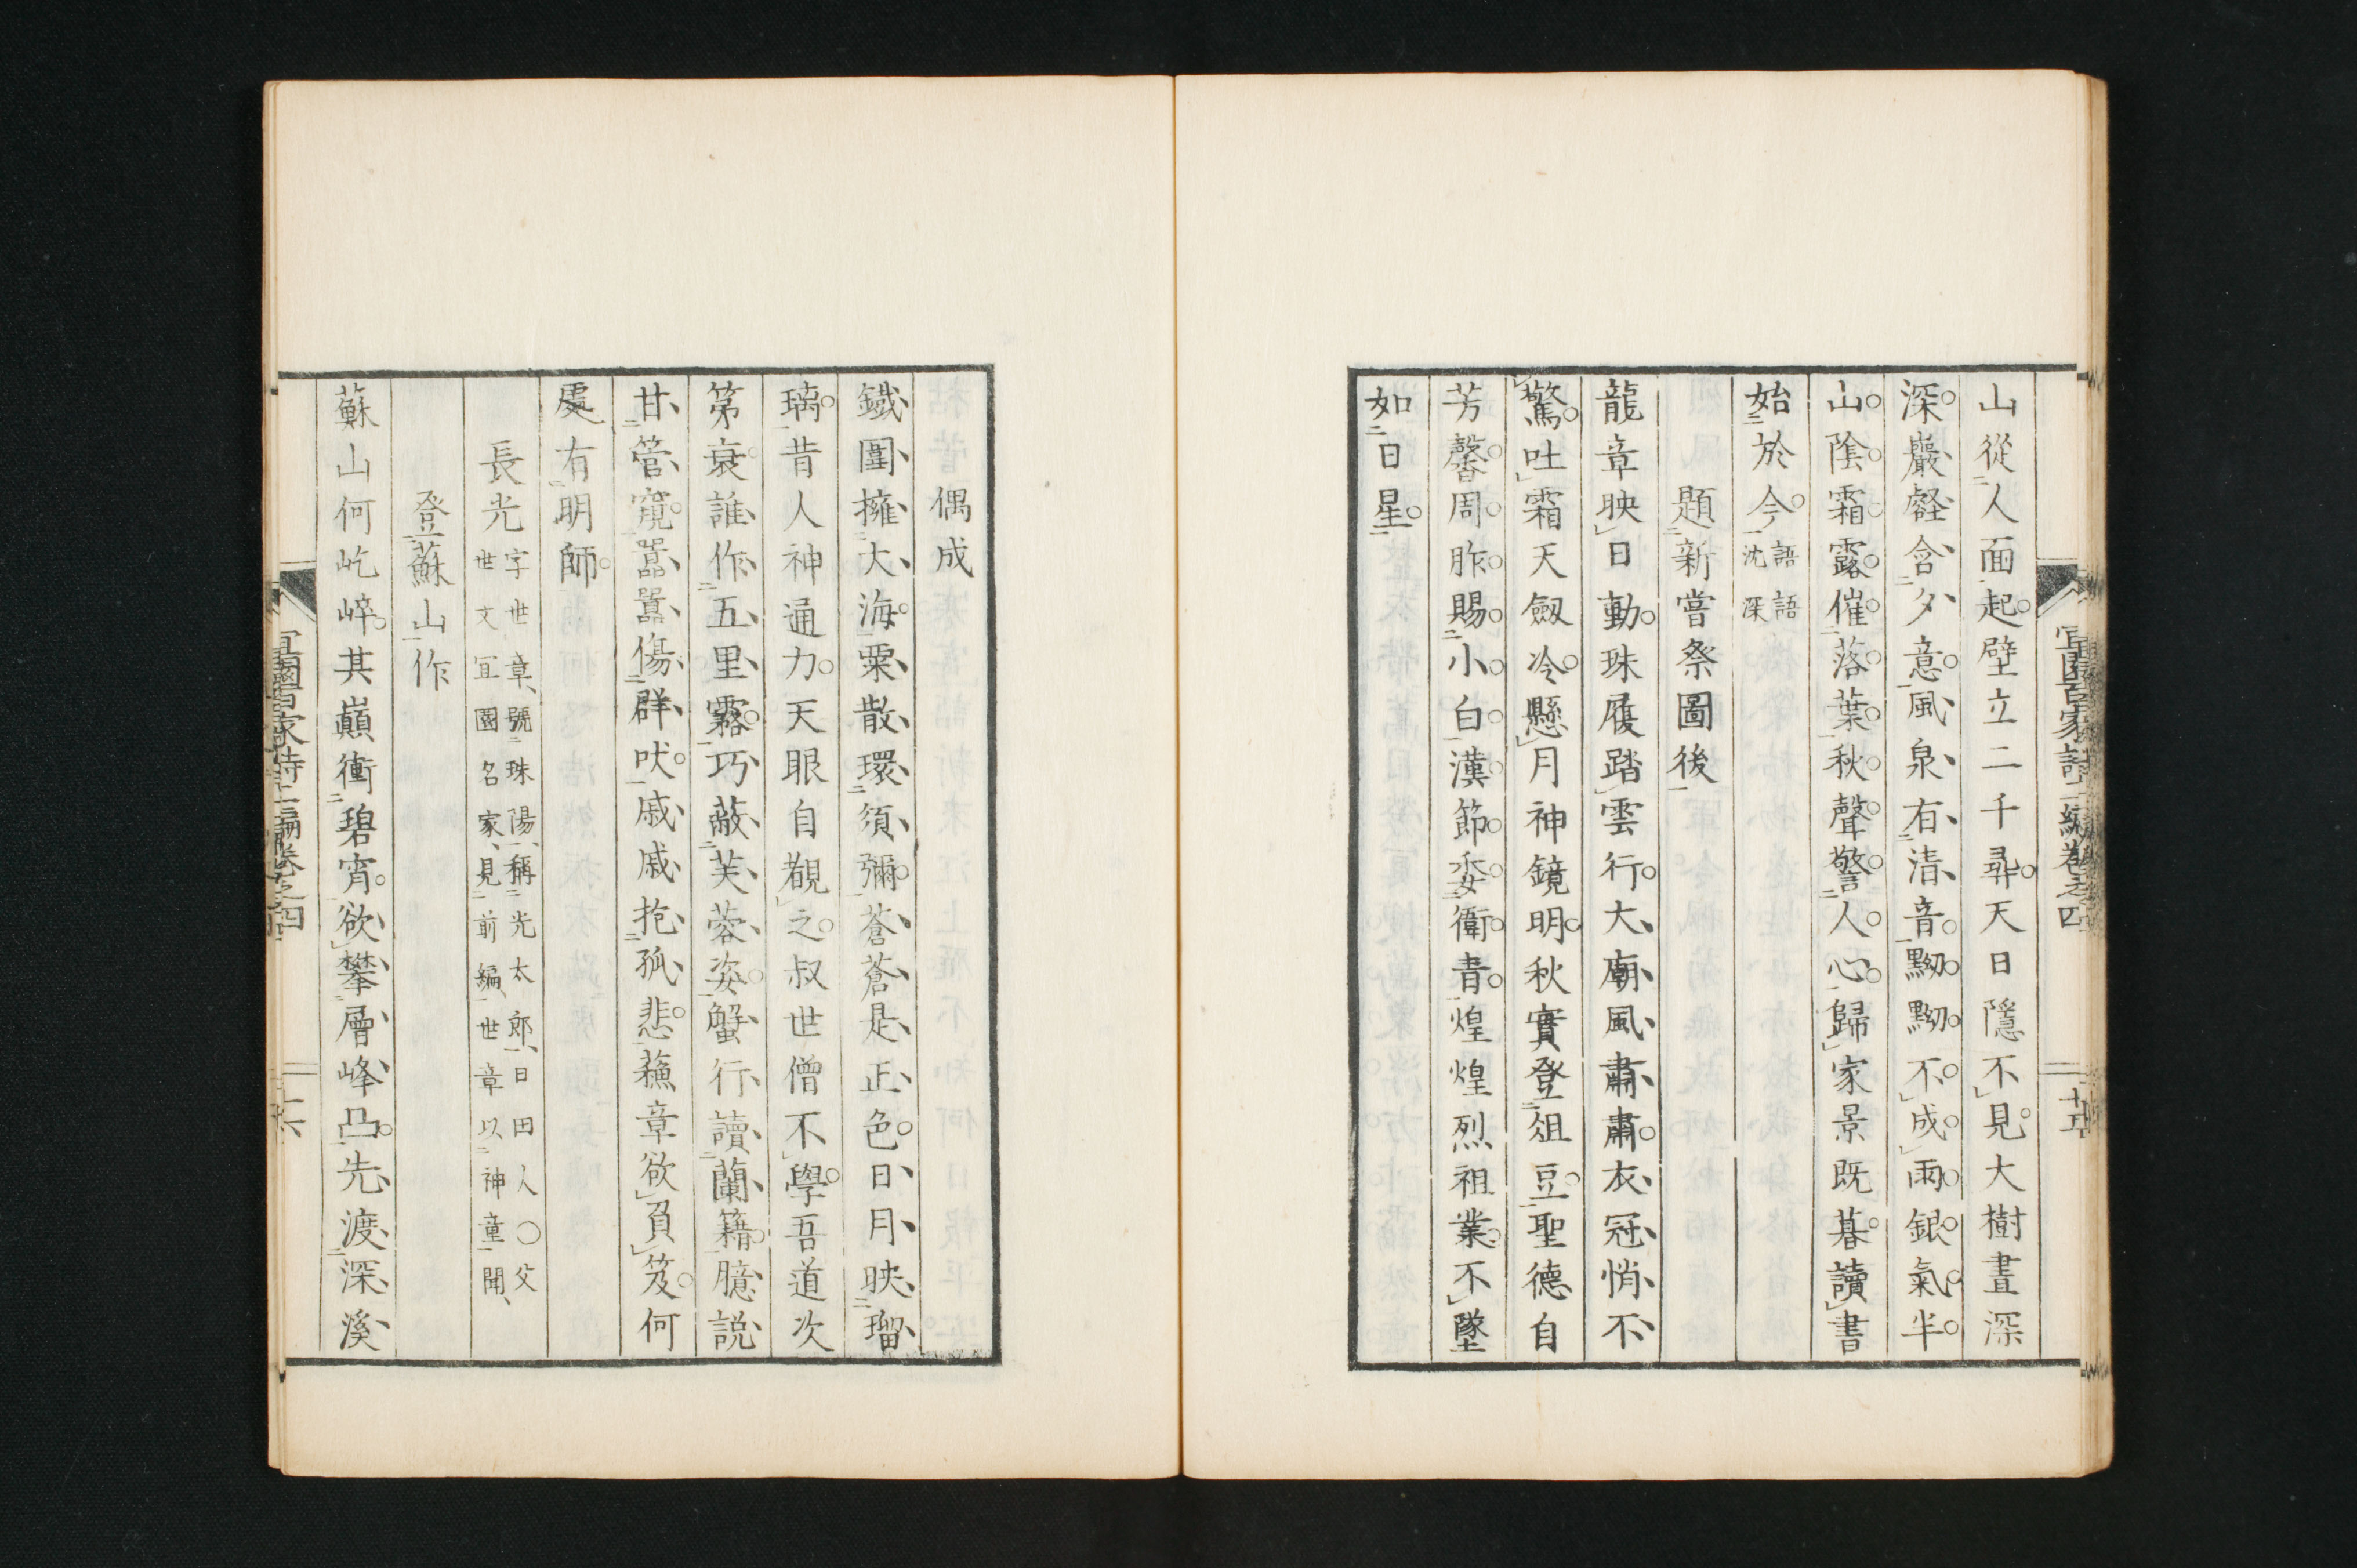 山從人面起壁立二千尋天日隱不見大樹晝深
深巖壑含夕意風泉有清音黝黝不成雨銀氣半
山陰霜露催落葉秋聲警人心歸家景既暮讀書
始於今語語沈深
題新嘗祭圖後
龍章映日動珠履踏雲行大廟風肅肅衣冠悄不
驚吐霜天劔冷懸月神鏡明秋實登俎豆聖德自
芳馨周胙賜小白漢節委衛青煌煌烈祖業不墜
如日星
宜園百家詩二編卷之四
十五
偶成
鐵圍擁大海粟散環須彌蒼蒼是正色日月映瑠
璃昔人神通力天眼自覩之叔世僧不學吾道次
第衰誰作五里霧巧蔽芙蓉姿蟹行讀蘭籍臆説
甘管窺囂囂傷群吠戚戚抱孤悲蘓章欲負笈何
處有明師
長光字世章號珠陽稱光太郎日田人○父
世文宜園名家見前編世章以神童聞
登蘇山作
蘇山何屹崪其巓衝碧宵欲攀層峰凸先渡深溪
宜園百家詩二編卷之四
十六